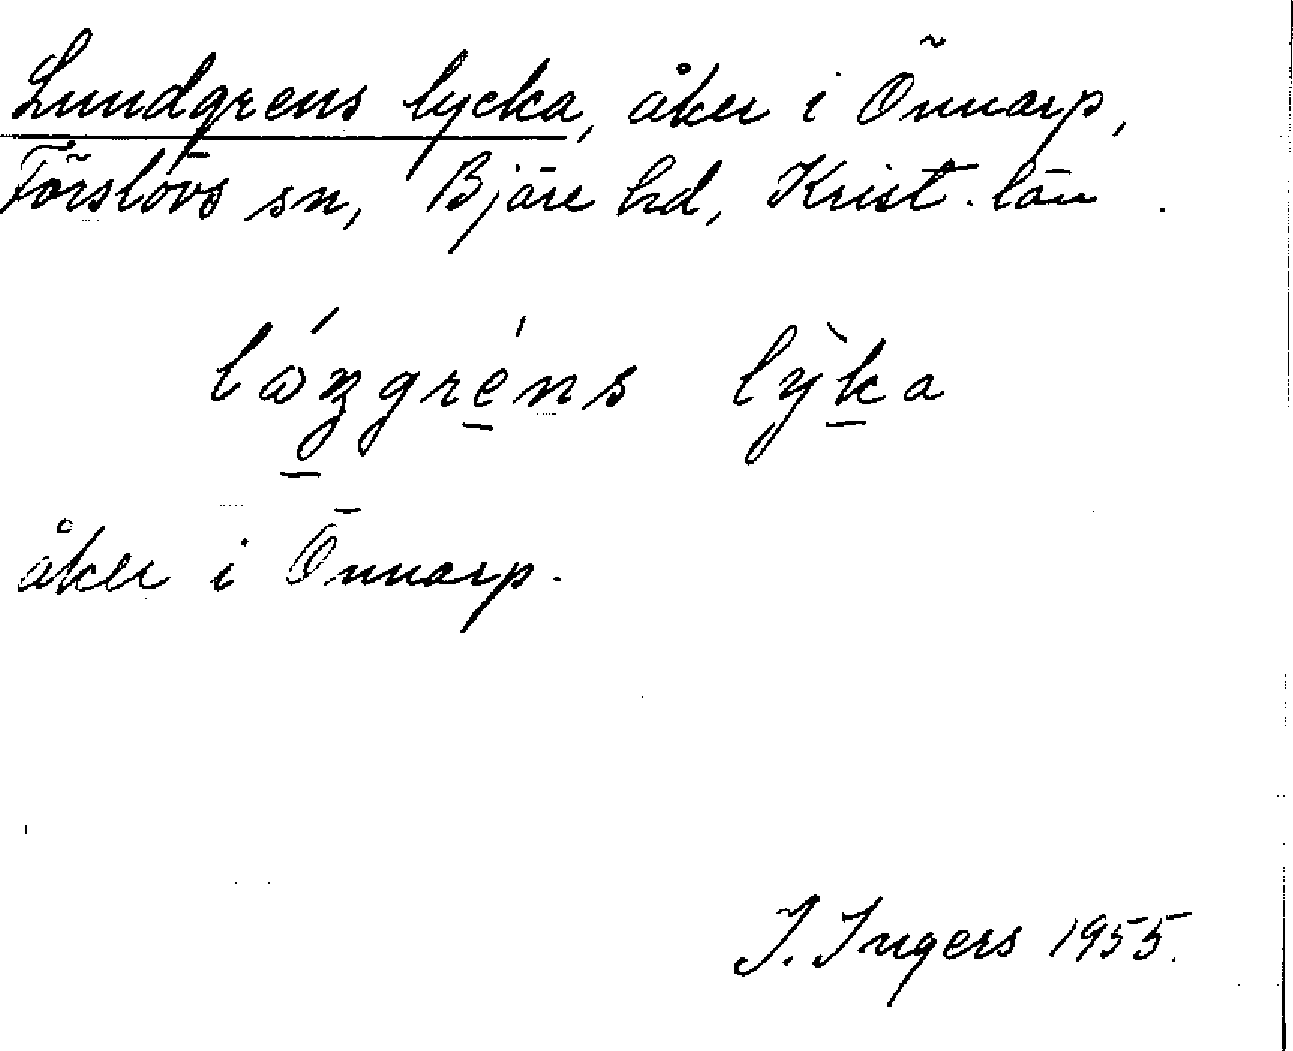 Lundgrens lycka, åker i Önnarp,
Förslövs sn, Bjäre hd, Krist. län.
lyka
åker i Önnarp.
I. Ingers 1955.